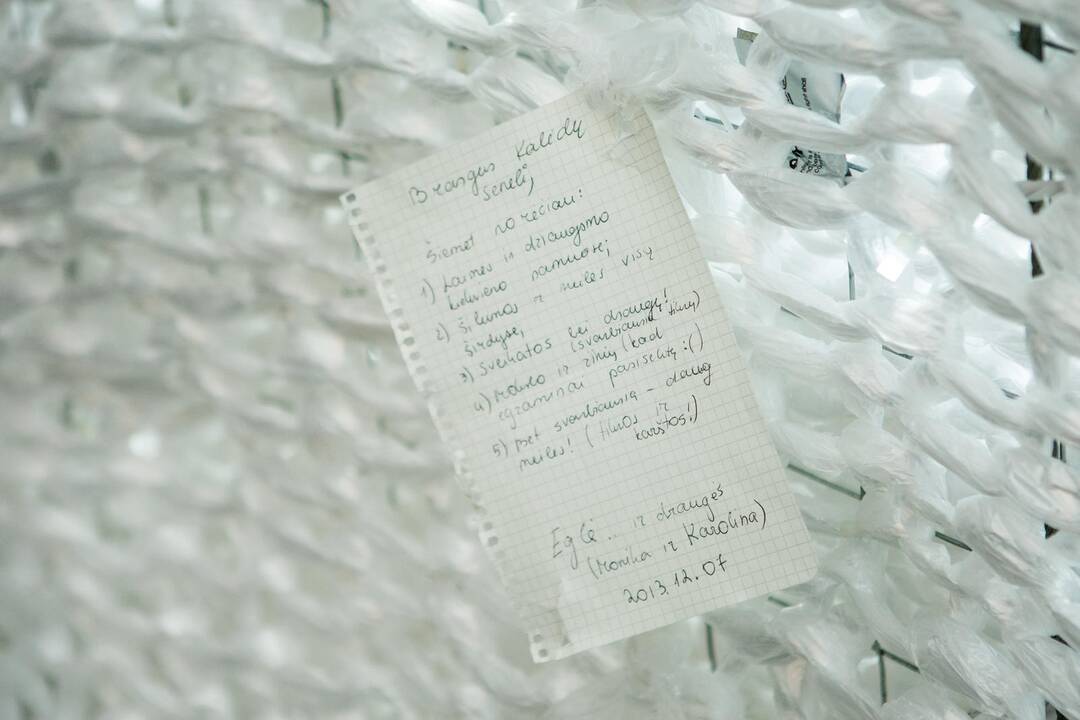 Brangus Kalėdų
Seneli,
Šiemet norėčiau:
1) Laimės ir džiaugsmo
kiekvieno namuose;
2) Šilumos ir meilės visų
širdyse,
3) Sveikatos bei draugų!
(svarbiausia tikrų)
4) Mokslo ir žinių (kad
egzaminai pasisektų :()
5) Bet svarbiausia – daug
meilės! (tikros ir
karštos!)
Eglė.. ir draugės
(Monika ir Karolina)
2013.12.07